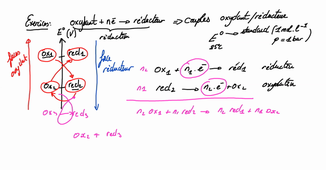 Exercices: oxydant + n ē → réducteur ⇒ Couples oxydant/réducteur
E° (V) réduction
E° → standard (1 mol.l⁻¹
25°C p = 1 bar)
force oxydant
force réducteur
ox1 red1
n2 ox1 + n1.e⁻ → red1 réduction
ox2 red2
n1 red2 → n2.e⁻ + ox2 oxydation
ox3 red3
n2 ox1 + n1 red2 → n2 red1 + n1 ox2
ox2 + red3